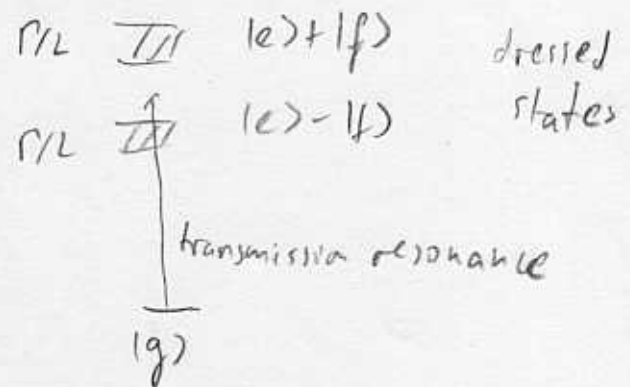 Γ/2 |e⟩+|f⟩ dressed
Γ/2 |e⟩-|f⟩ states
transmission resonance
|g⟩